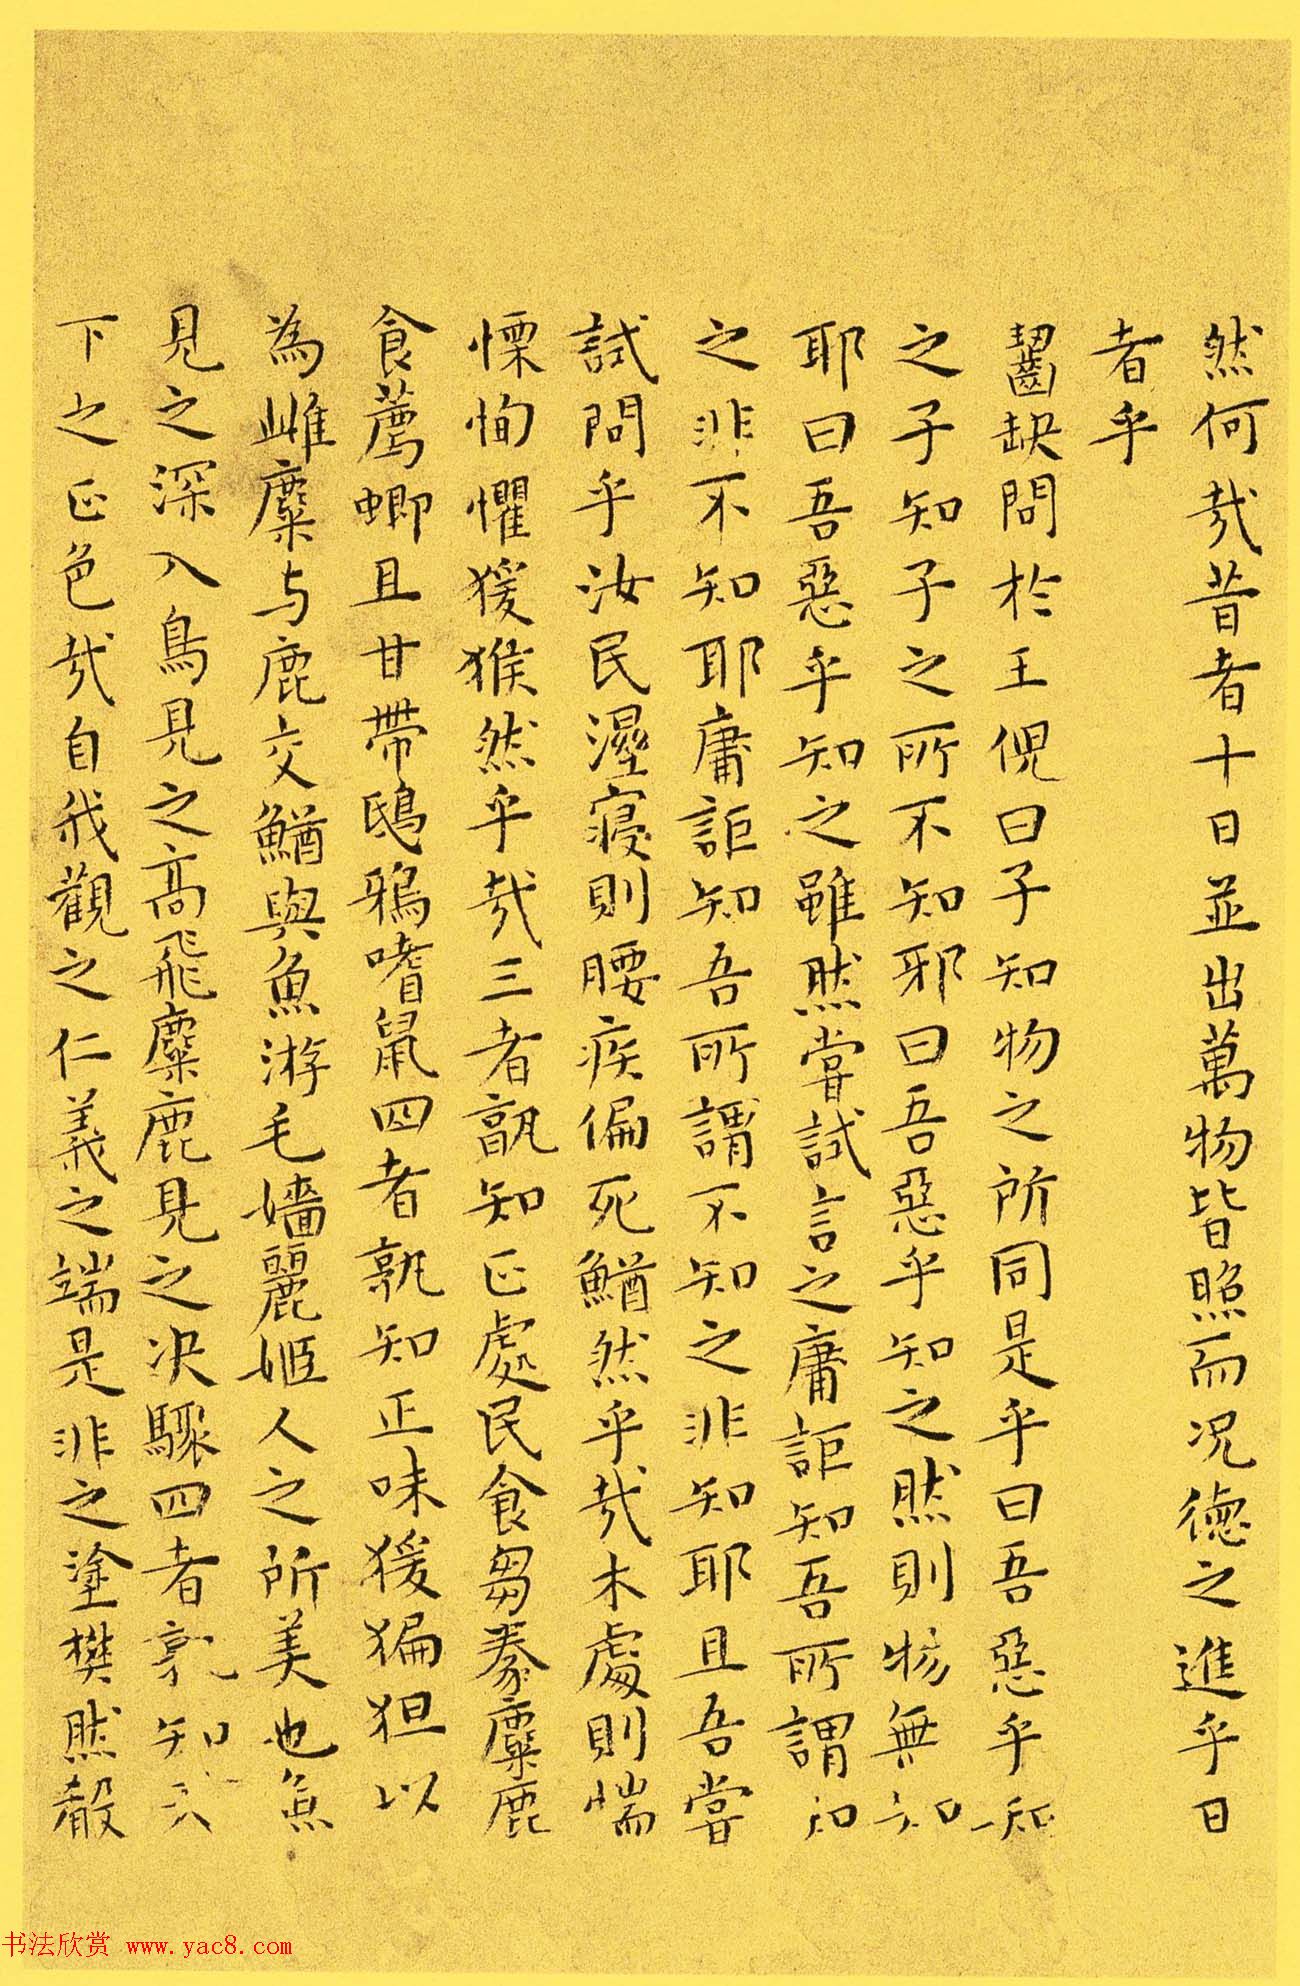 然何哉昔者十日並出萬物皆照而况德之進乎日
者乎
齧缺問於王倪曰子知物之所同是乎曰吾惡乎知
之子知子之所不知邪曰吾惡乎知之然則物無知
耶曰吾惡乎知之雖然嘗試言之庸詎知吾所謂知
之非不知耶耶庸詎知吾所謂不知之非知耶且吾嘗
試問乎汝民溼寝則腰疾偏死鰌然乎哉木處則惴
慄恂懼猨猴然乎哉三者孰知正處民食芻豢麋鹿
食薦蝍且甘帶鴟鴉嗜鼠四者孰知正味猨猵狙以
為雌麋与鹿交鰌與魚游毛嬙麗姬人之所美也魚
見之深入鳥見之高飛麋鹿見之决驟四者孰知天
下之正色哉自我觀之仁義之端是非之塗樊然殽
书法欣赏 www.yac8.com